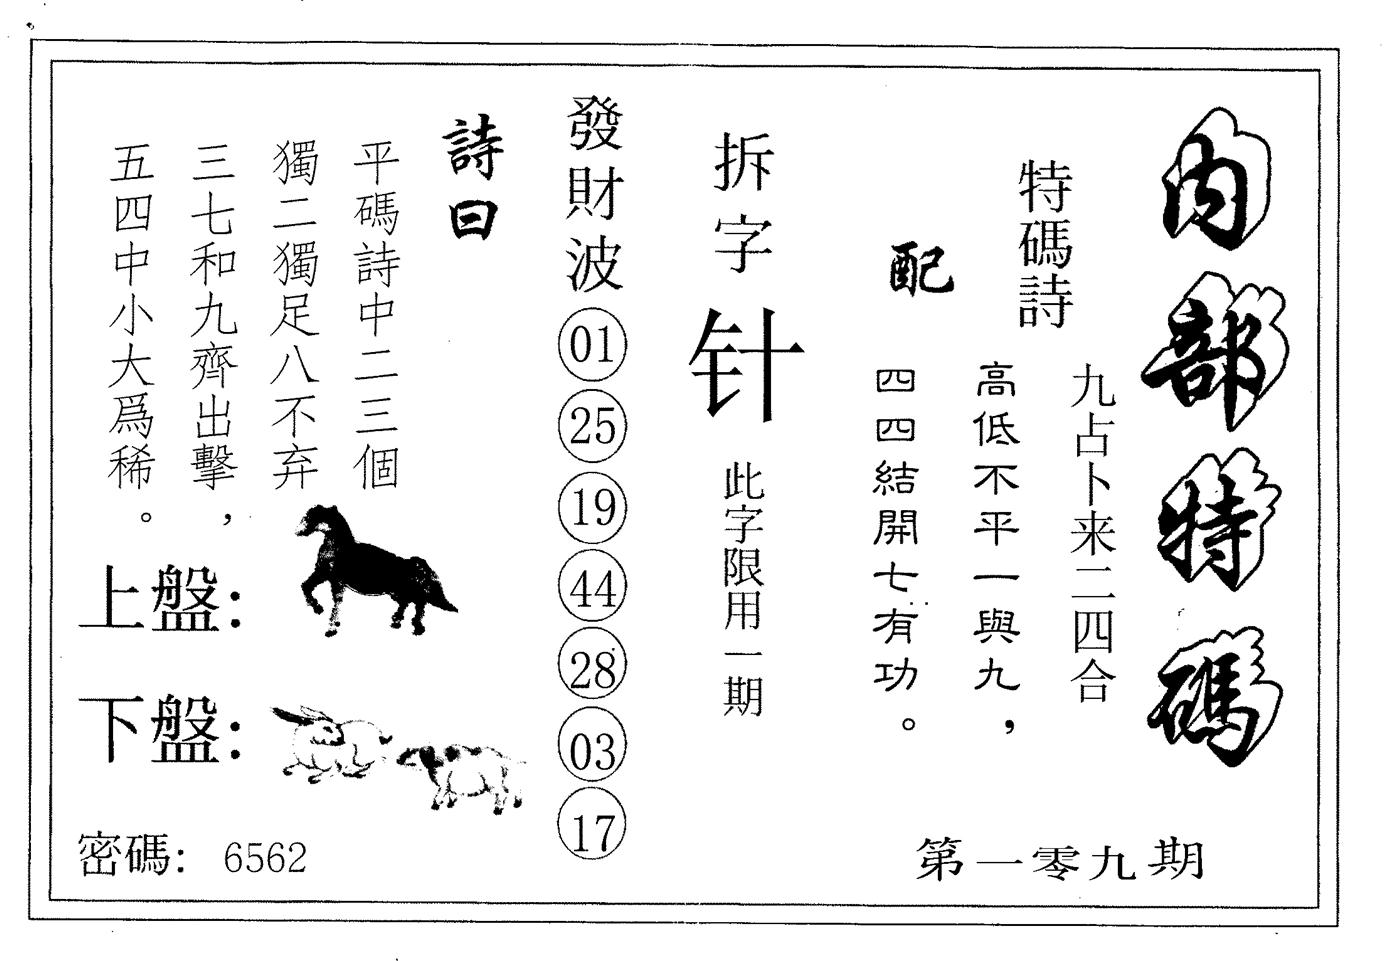 内部特碼
第一零九期
特碼詩
九占卜来二四合
高低不平一與九，
配
四四結開七有功。
拆字
针
此字限用一期
發財波
01
25
19
44
28
03
17
詩曰
平碼詩中二三個
獨二獨足八不弃
三七和九齊出擊，
五四中小大爲稀。
上盤：
下盤：
密碼： 6562